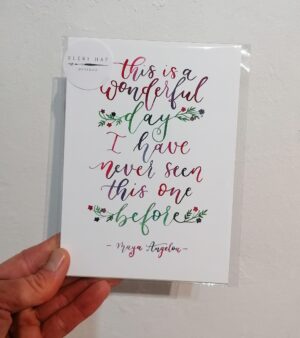 this is a
wonderful
day
I have
never seen
this one
before
- Maya Angelou -